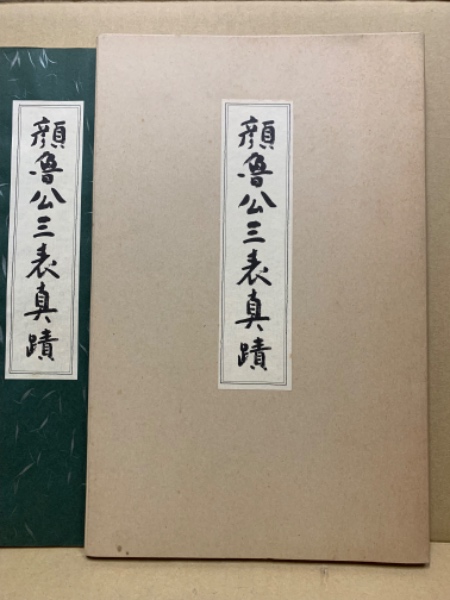 顔魯公三表真蹟
顔魯公三表真蹟